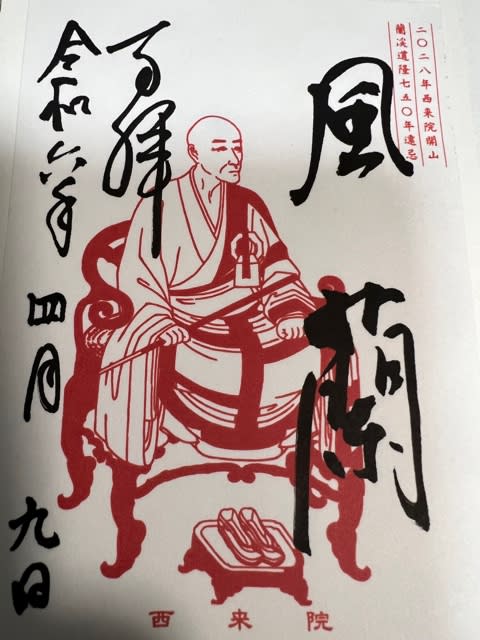 二〇二八年西来院開山
蘭渓道隆七五〇年遠忌
風蘭
奉拝
令和六年四月九日
西来院